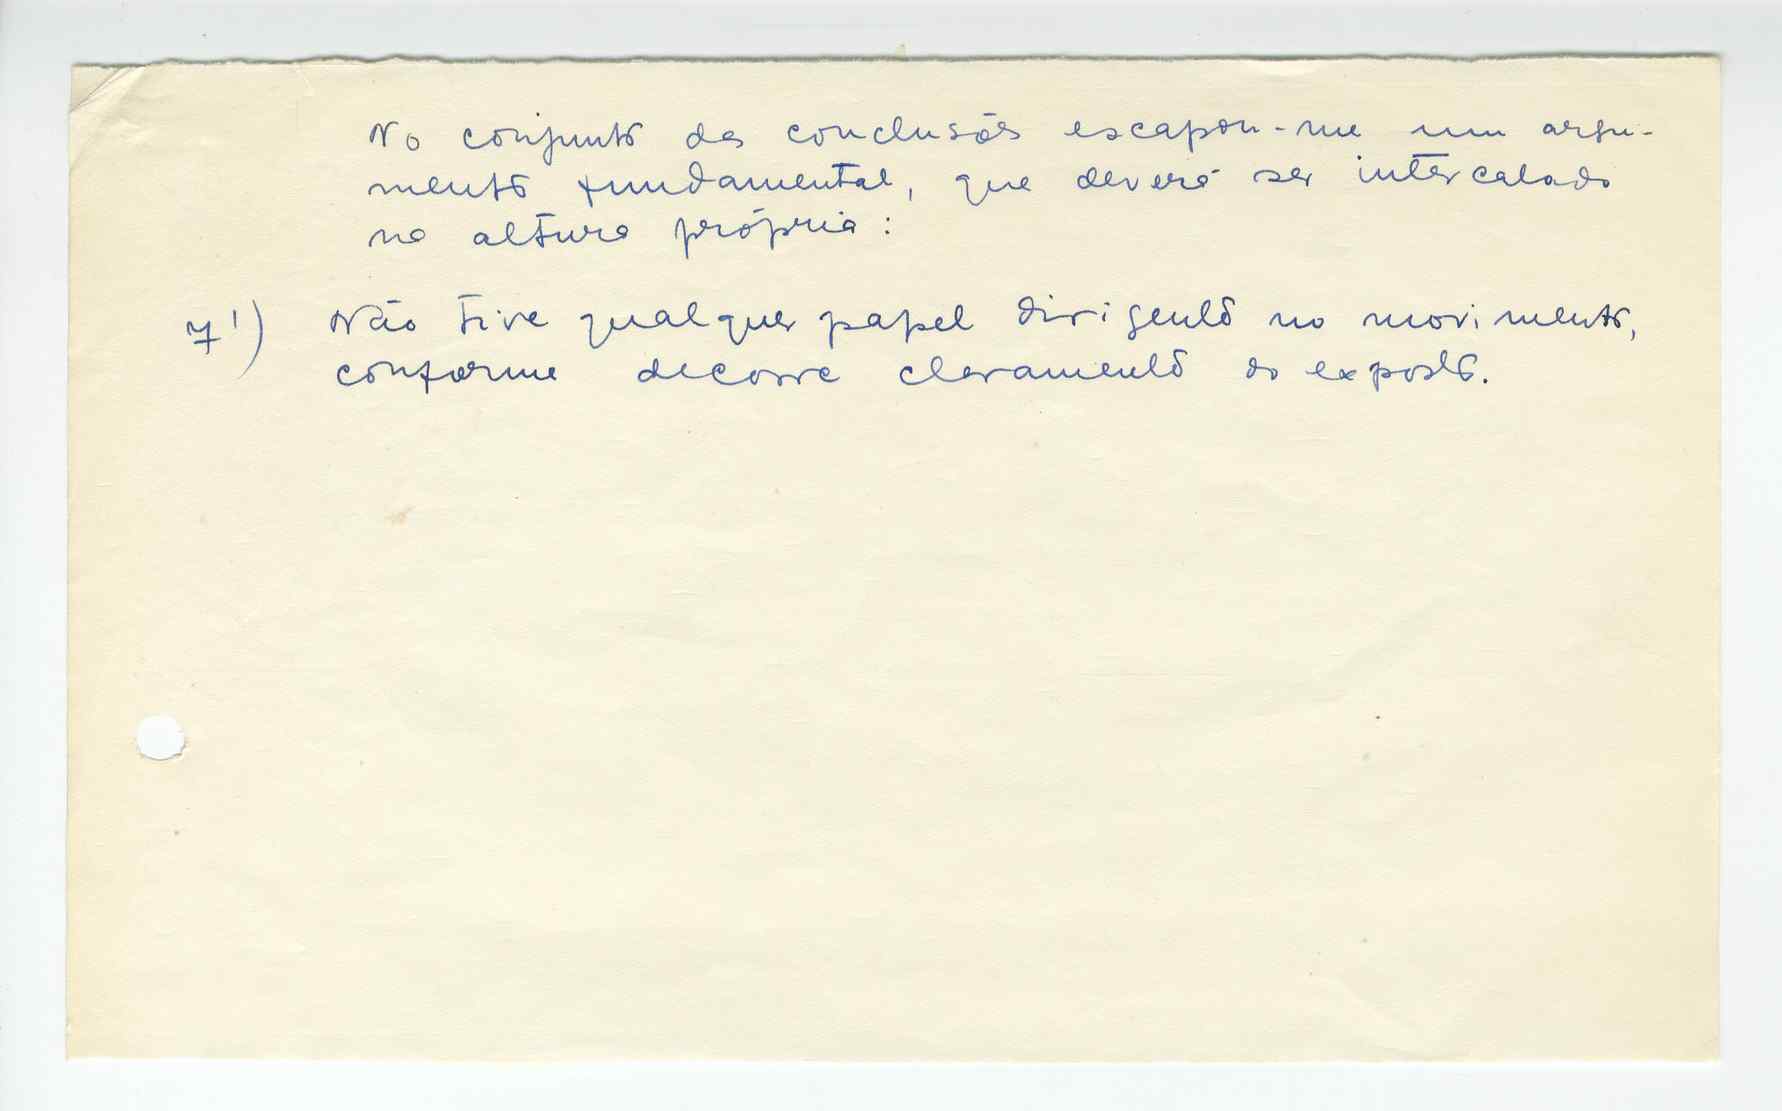 No conjunto das conclusões escapou-me um argu-
mento fundamental, que deverá ser intercalado
na altura própria:
7') Não tive qualquer papel dirigente no movimento,
conforme decorre claramente do exposto.